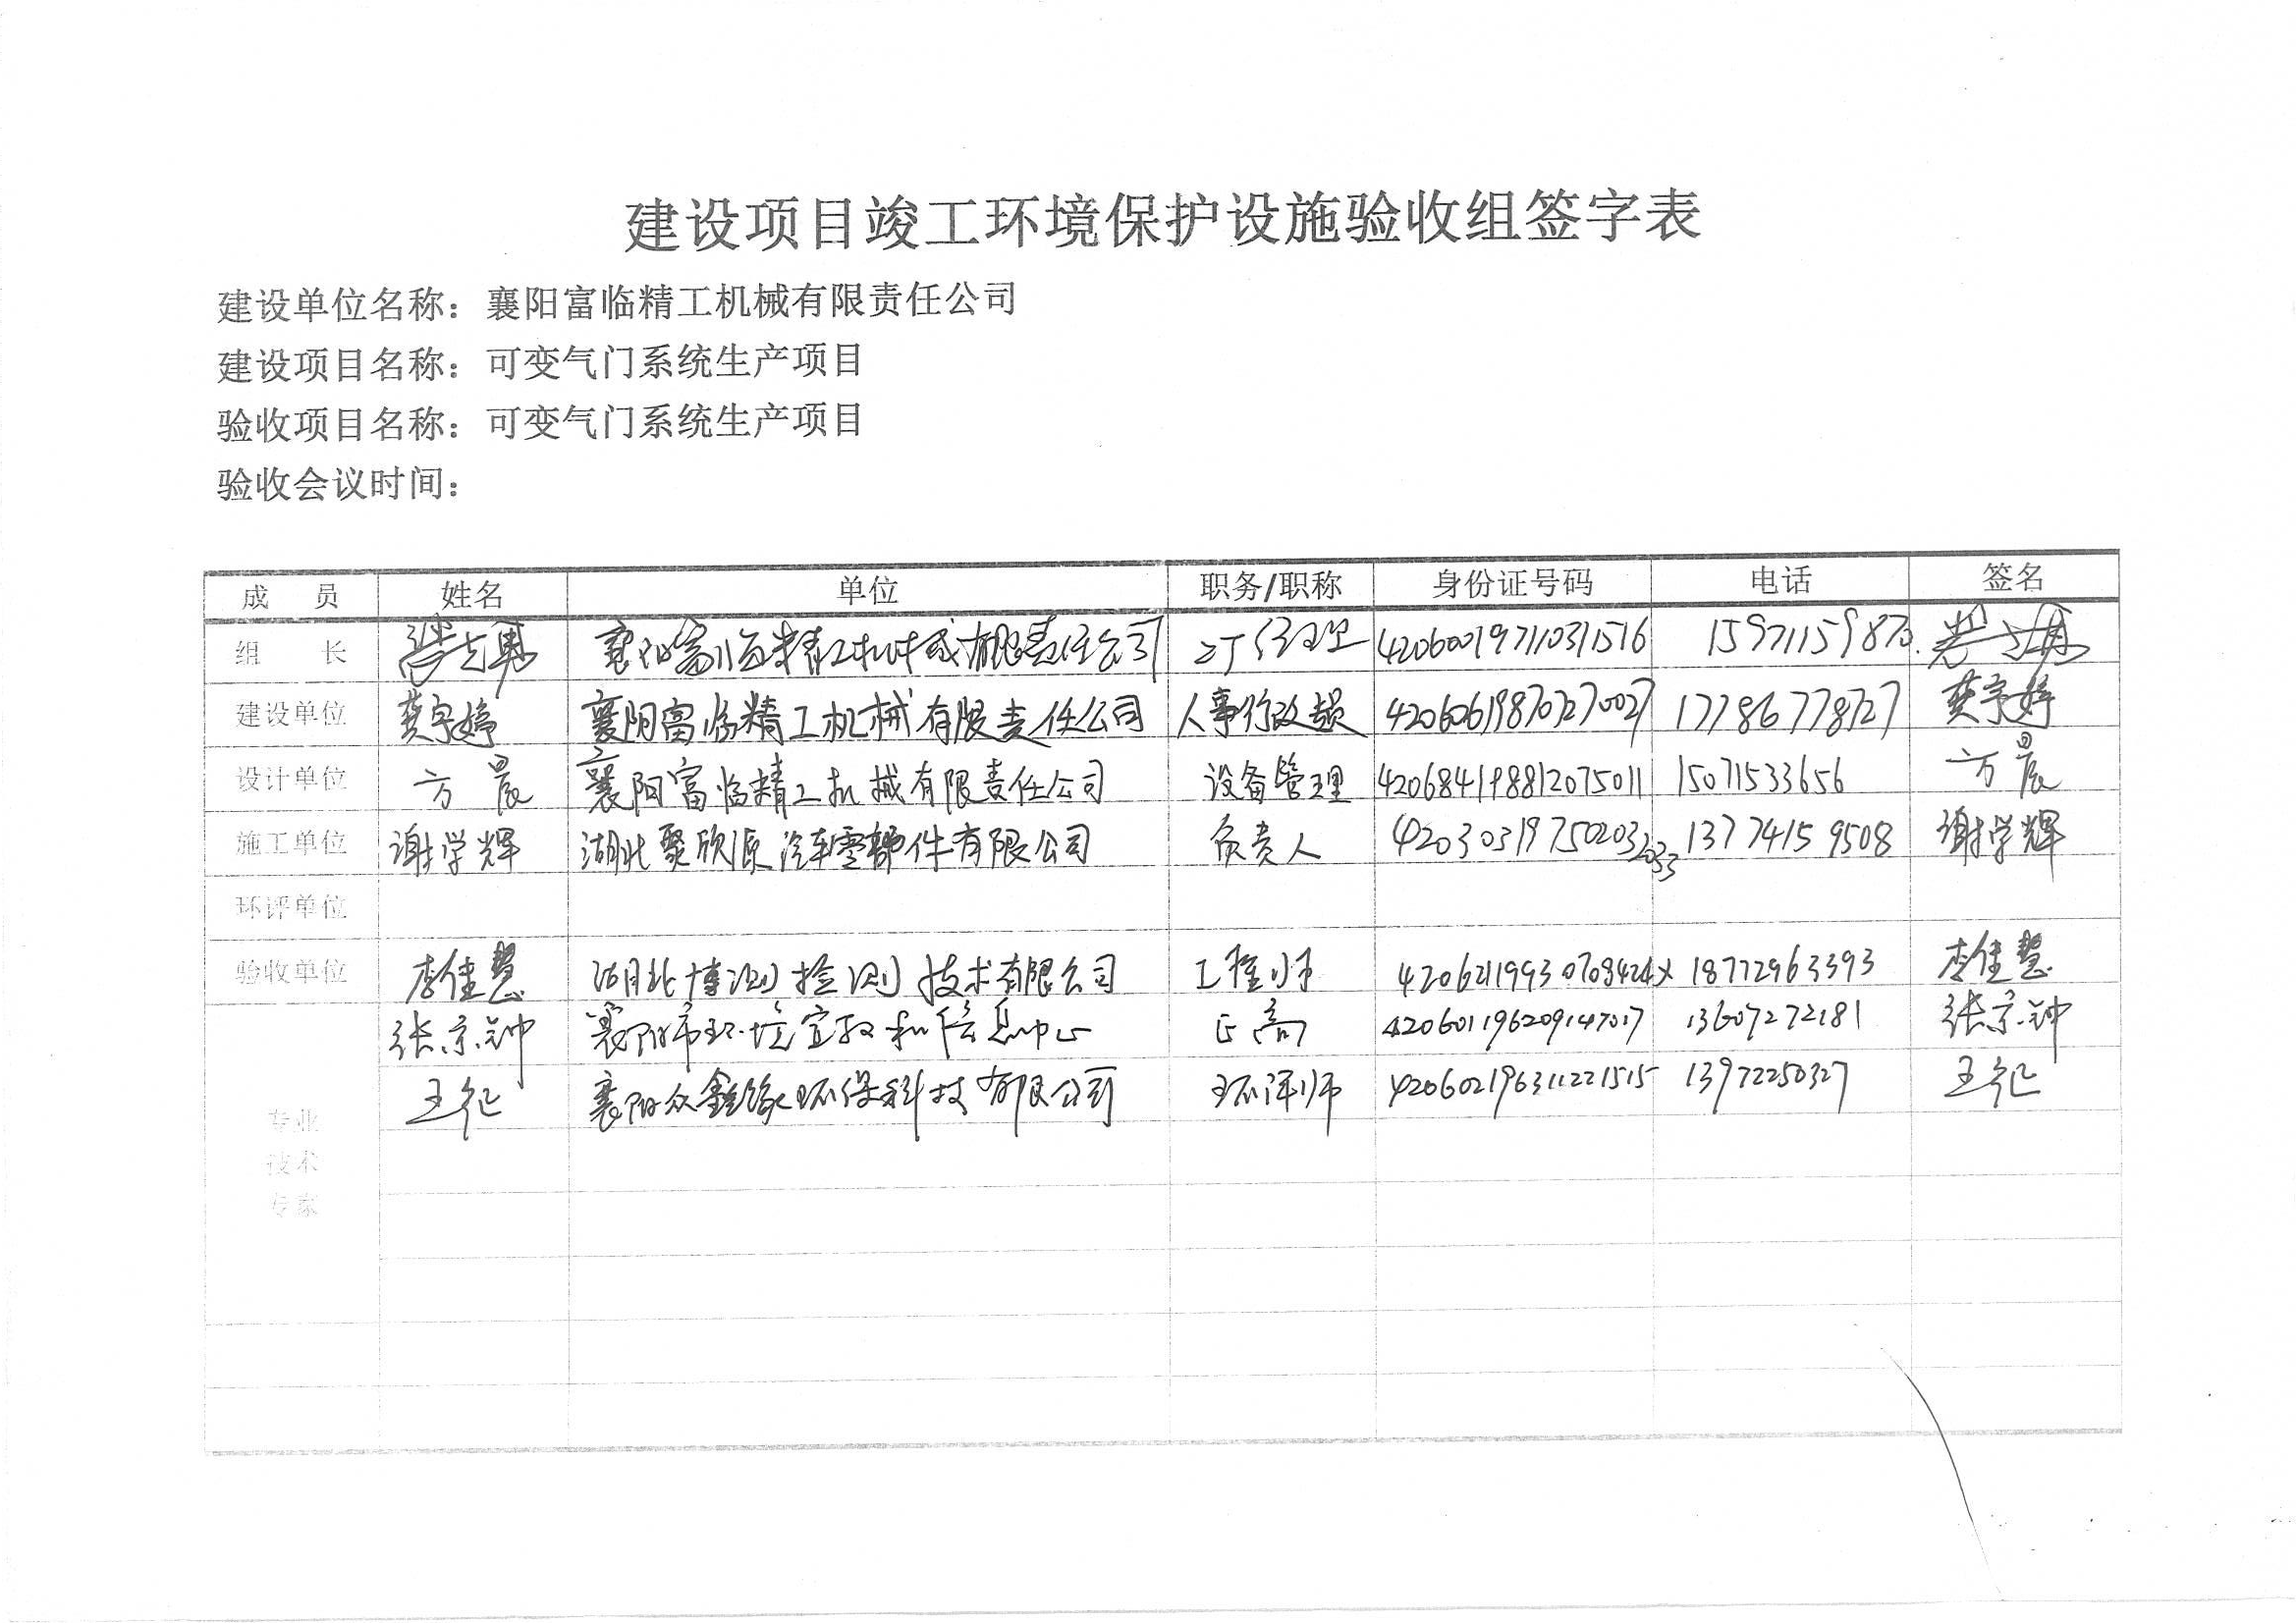 建设项目竣工环境保护设施验收组签字表
建设单位名称：襄阳富临精工机械有限责任公司
建设项目名称：可变气门系统生产项目
验收项目名称：可变气门系统生产项目
验收会议时间：
成 员 姓名 单位 职务/职称 身份证号码 电话 签名
组 长 襄阳富临精工机械有限责任公司 经理 420600197110371516 15971159870
建设单位 龚宇婷 襄阳富临精工机械有限责任公司 人事行政 420606198707270027 17786778727 龚宇婷
设计单位 方晨 襄阳富临精工机械有限责任公司 设备管理 420684198812075011 15071533656 方晨
施工单位 谢学辉 湖北聚欣源汽车零部件有限公司 负责人 420303197502032033 13774159508 谢学辉
环评单位
验收单位 李佳慧 湖北博测检测技术有限公司 工程师 42062119930708424X 18772963393 李佳慧
专业技术专家 张京钟 襄阳市环境宣教和信息中心 正高 420601196209147017 13607272181 张京钟
王征 襄阳众鑫缘环保科技有限公司 环评师 420602196311221515 13972250327 王征